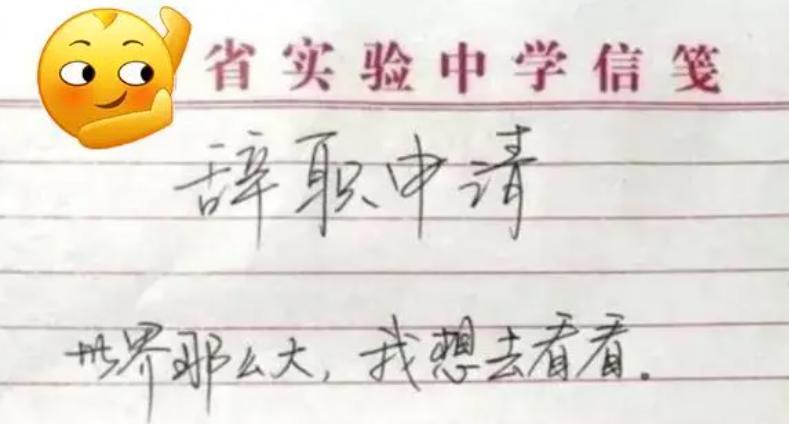 省实验中学信笺
辞职申请
世界那么大，我想去看看。